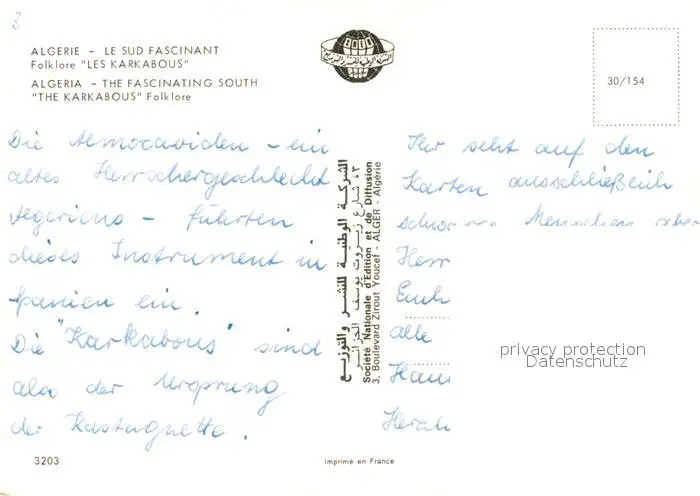 3
ALGERIE – LE SUD FASCINANT
Folklore "LES KARKABOUS"
ALGERIA – THE FASCINATING SOUTH
"THE KARKABOUS" Folklore
SNED
30/154
Die Almoraviden – ein
altes Herrschergeschlecht
Algeriens – führten
dieses Instrument in
Spanien ein.
Die "Karkabous" sind
also der Ursprung
der Kastagnette.
الشركة الوطنية للنشر والتوزيع
٣، شارع زيروت يوسف الجزائر
Société Nationale d'Edition et de Diffusion
3, Boulevard Zirout Youcef - ALGER - Algérie
Ihr seht auf den
Karten ausschließlich
Menschen aber
Herr
Euch
alle
privacy protection
Datenschutz
3203
Imprimé en France